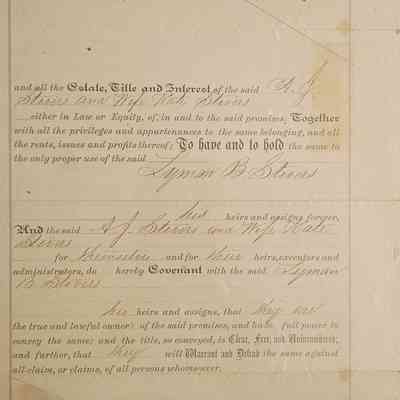 and all the Estate, Title and Interest of the said A. J.
Stevens and Wife Kate Stevens
either in Law or Equity, of, in and to the said premises, Together
with all the privileges and appurtenances to the same belonging, and all
the rents, issues and profits thereof; To have and to hold the same to
the only proper use of the said
Lyman B Stevens
his heirs and assigns forever,
And the said A. J. Stevens and Wife Kate
Stevens
for themselves and for their heirs, executors and
administrators, do hereby Covenant with the said Lyman
B Stevens
his heirs and assigns, that they are
the true and lawful owners of the said premises, and have full power to
convey the same; and the title, so conveyed, is Clear, Free, and Unincumbered;
and further, that they will Warrant and Defend the same against
all claim, or claims, of all persons whomsoever.